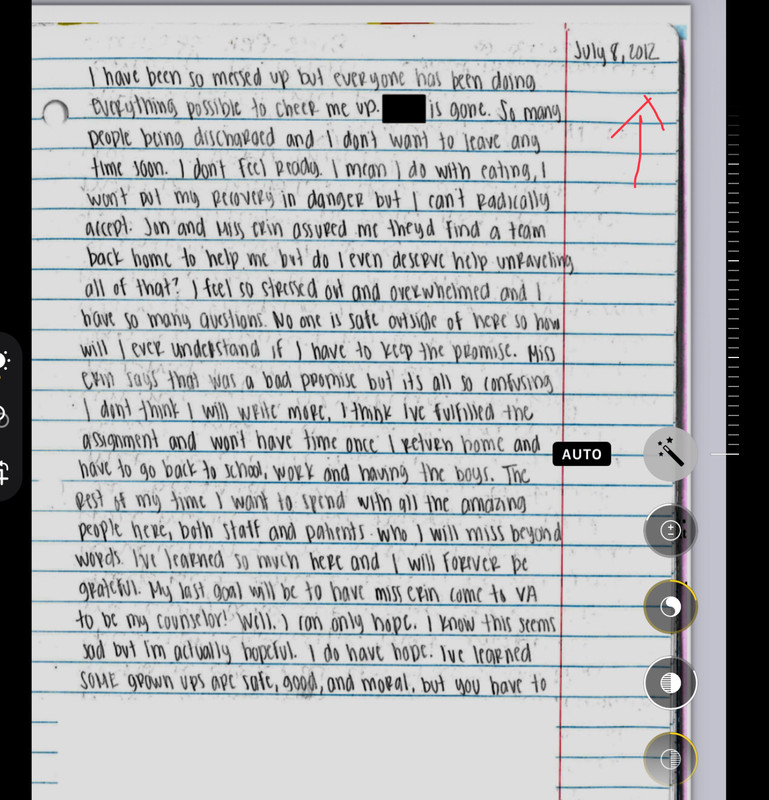 July 8, 2012
I have been so messed up but everyone has been doing
everything possible to cheer me up. is gone. So many
people being discharged and I don't want to leave any
time soon. I don't feel ready. I mean I do with eating, I
won't put my recovery in danger but I can't radically
accept. Jon and Miss Erin assured me theyd find a team
back home to help me but do I even deserve help unraveling
all of that? I feel so stressed out and overwhelmed and I
have so many questions. No one is safe outside of here so how
will I ever understand if I have to keep the promise. Miss
Erin says that was a bad promise but its all so confusing
I dont think I will write more, I think Ive fulfilled the
assignment and wont have time once I return home and
have to go back to school, work and having the boys. The
rest of my time I want to spend with all the amazing
people here, both staff and patients who I will miss beyond
words. Ive learned so much here and I will forever be
grateful. My last goal will be to have miss erin come to VA
to be my counselor! Well. I can only hope. I know this seems
sad but I'm actually hopeful. I do have hope. I've learned
SOME grown ups are safe, good, and moral, but you have to
AUTO